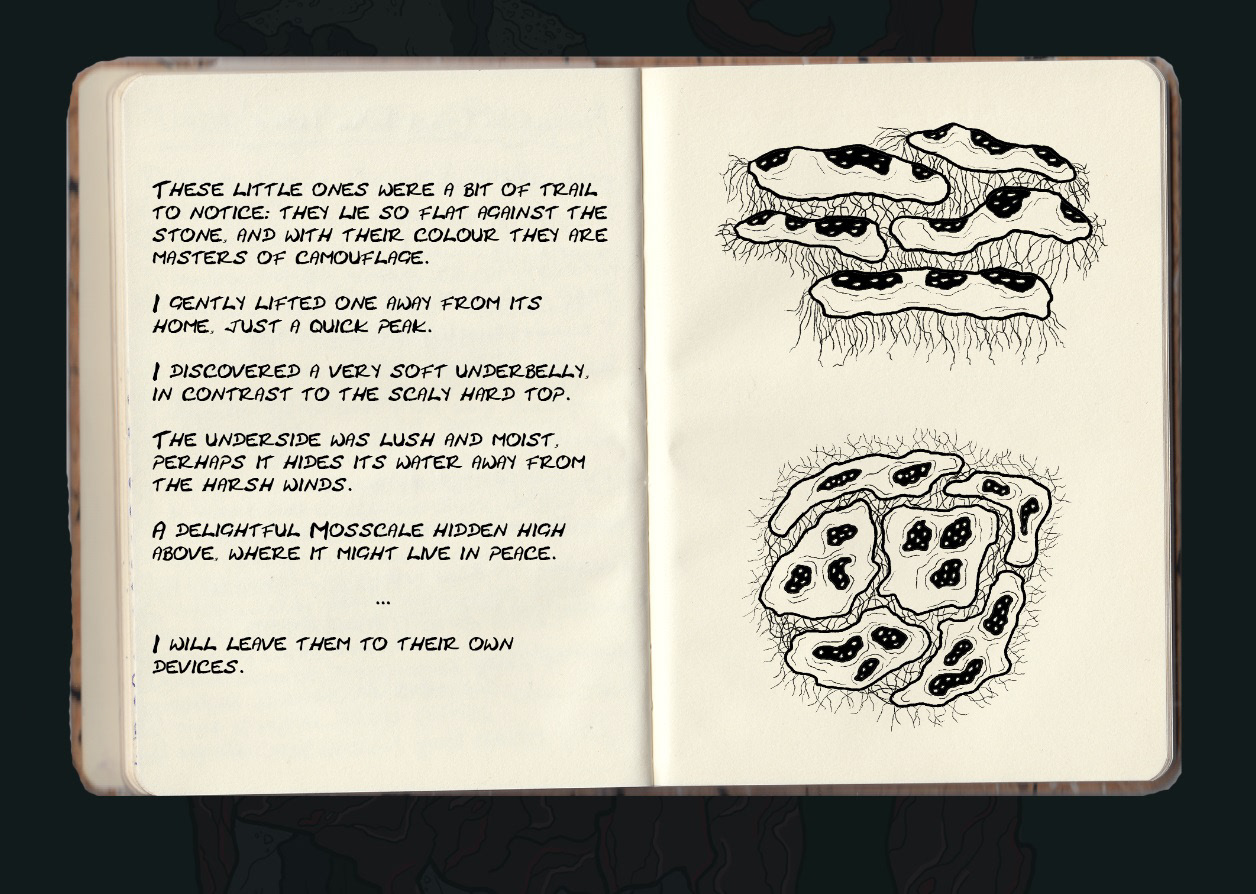 These little ones were a bit of trail
to notice: they lie so flat against the
stone, and with their colour they are
masters of camouflage.
I gently lifted one away from its
home, just a quick peak.
I discovered a very soft underbelly,
in contrast to the scaly hard top.
The underside was lush and moist,
perhaps it hides its water away from
the harsh winds.
A delightful Mosscale hidden high
above, where it might live in peace.
...
I will leave them to their own
devices.